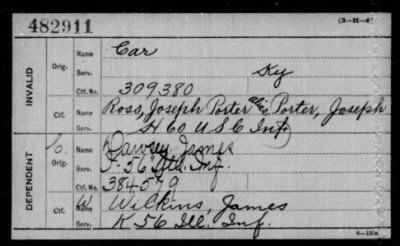 482911 (3-11-4)
INVALID
Orig. Name Car
Serv. Ky
Ctf. No. 309380
Ctf. Name Ross, Joseph Porter alias Porter, Joseph
Serv. H 60 U S C Inf
DEPENDENT
Orig. C. Name James
Serv. 56 Inf.
Ctf. No. 384579
Ctf. W Name Wilkins, James
Serv. K 56 Ill. Inf.